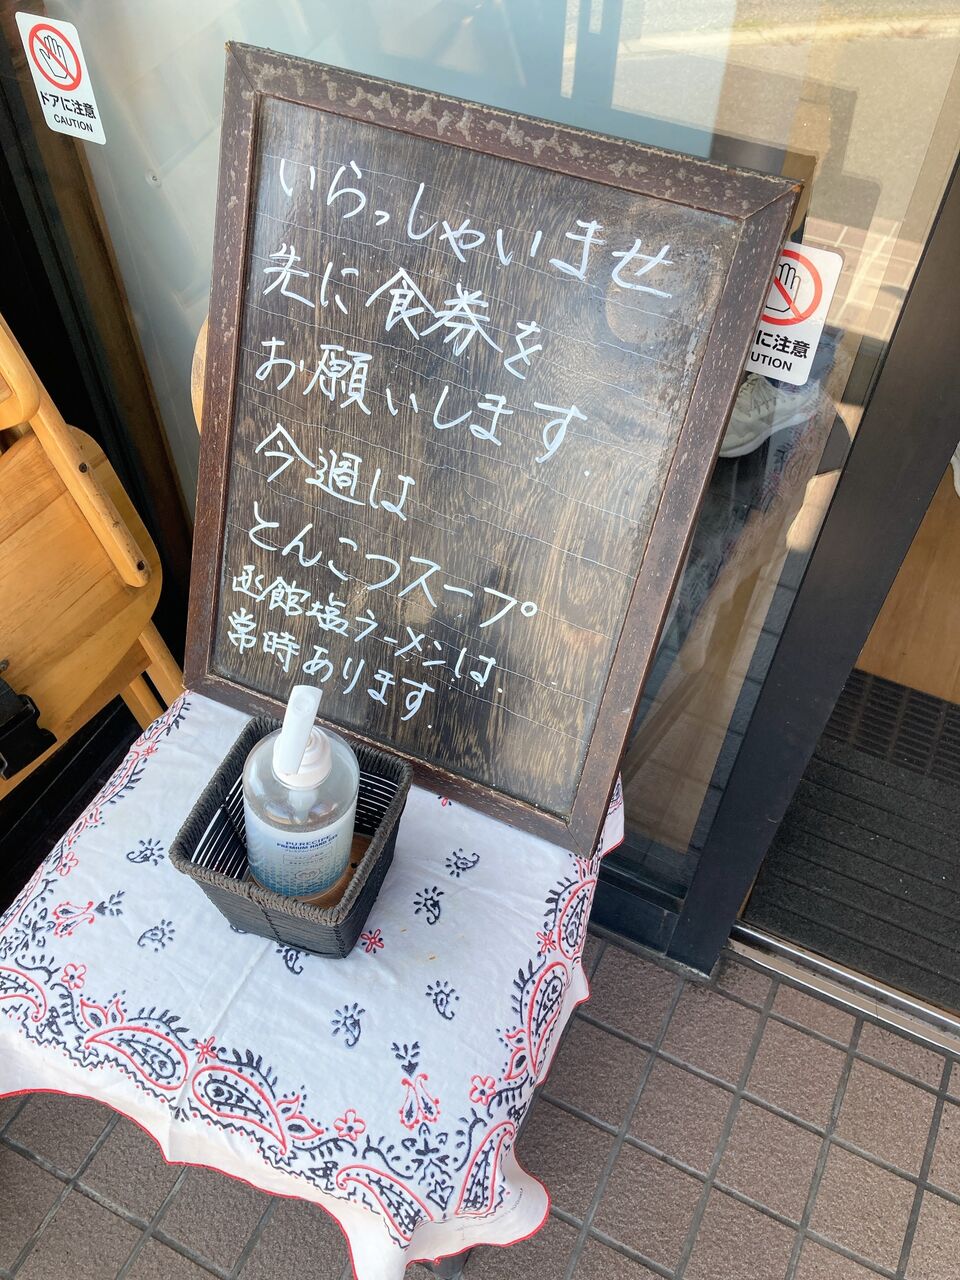 ドアに注意
CAUTION
いらっしゃいませ
先に食券を
お願いします.
今週は
とんこつスープ
函館塩ラーメンは.
常時あります.
に注意
UTION
PURECIPE
PREMIUM HAND GEL